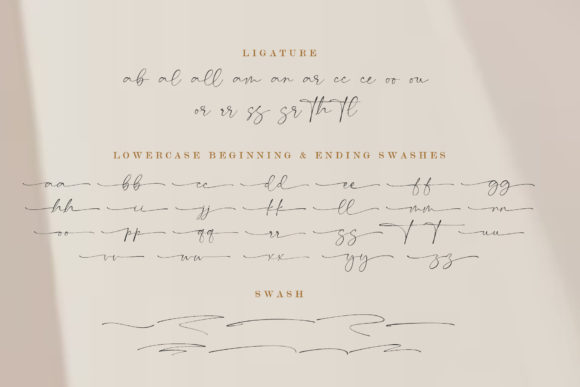 LIGATURE
ab al all am an ar cc ce oo ou
or rr ss sr Th
LOWERCASE BEGINNING & ENDING SWASHES
aa bb cc dd ee ff gg
hh ii jj kk ll mm nn
oo pp qq rr ss tt uu
vv ww xx yy zz
SWASH